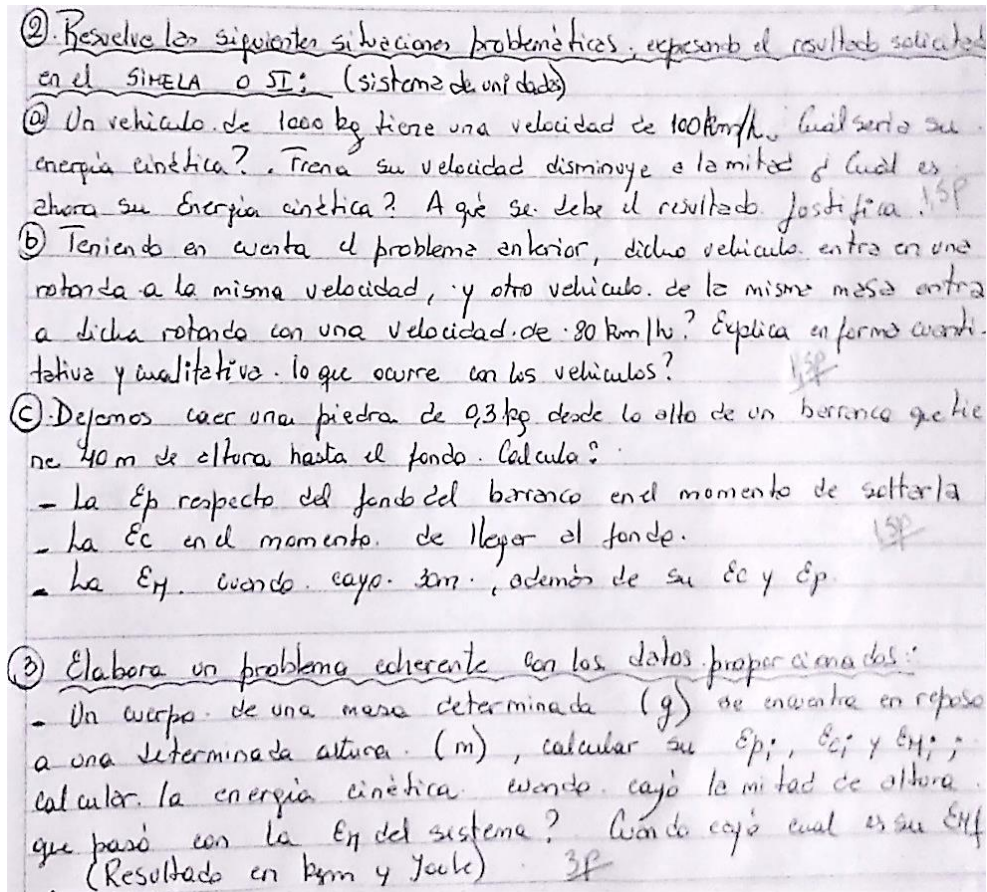 ②. Resuelve las siguientes situaciones problemáticas, expresando el resultado solicitado
en el SIMELA O SI: (sistema de unidades)
ⓐ Un vehiculo de 1000 kg tiene una velocidad de 100 km/h. Cuál sería su
energía cinética?. Frena su velocidad disminuye a la mitad ¿ Cuál es
ahora su Energía cinética? A qué se debe el resultado Justifica. 1,5P
ⓑ Teniendo en cuenta el problema anterior, dicho vehiculo entra en una
rotonda a la misma velocidad, y otro vehiculo de la misma masa entra
a dicha rotonda con una velocidad de 80 km/h? Explica en forma cuanti-
tativa y cualitativa lo que ocurre con los vehiculos? 1,5P
ⓒ Dejamos caer una piedra de 0,3 kg desde lo alto de un barranco que tie
ne 40 m de altura hasta el fondo. Calcula:
- La Ep respecto del fondo del barranco en el momento de soltarla
- La Ec en el momento de llegar al fondo. 1,5P
- La EM cuando cayo 30m, además de su Ec y Ep.
③ Elabora un problema coherente con los datos proporcionados:
- Un cuerpo de una masa determinada (g) se encuentra en reposo
a una determinada altura (m), calcular su Epi, Eci y EMi;
calcular la energía cinética cuando cayó la mitad de altura
que pasó con la EM del sistema? Cuando cayó cual es su EMf
(Resultado en kgm y Joule) 3P